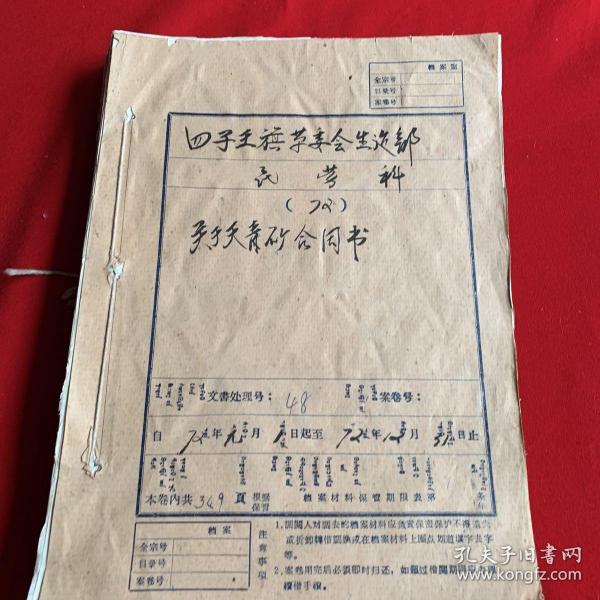 档案馆
全宗号
目录号
案卷号
四子王旗革委会生边部
民劳科
(72)
关于天青矿合同书
文書处理号: 48 案卷号:
自 72年元月1日起至72年12月31日止
本卷内共349頁 根据 档案材料保管期限表第 条
保管 年
档案
全宗号
目录号
案卷号
注意事项
1.調閱人对調去的档案材料应負責保密保护不得丢失
或拆卸轉借調換或在档案材料上圈点划道填字去字
等。
2.案卷用完后必須即时归还，如超过借閱期
續借手續。
孔夫子旧书网
www.kongfz.com